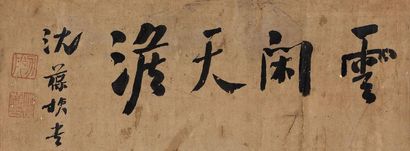 雲閑天淡
沈葆楨書